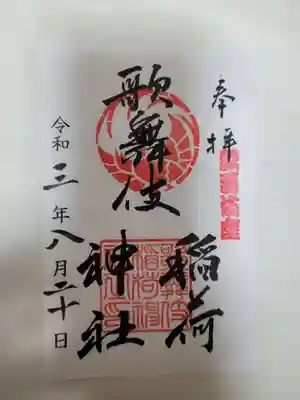 奉拝
歌舞伎
稲荷
神社
令和三年八月二十日